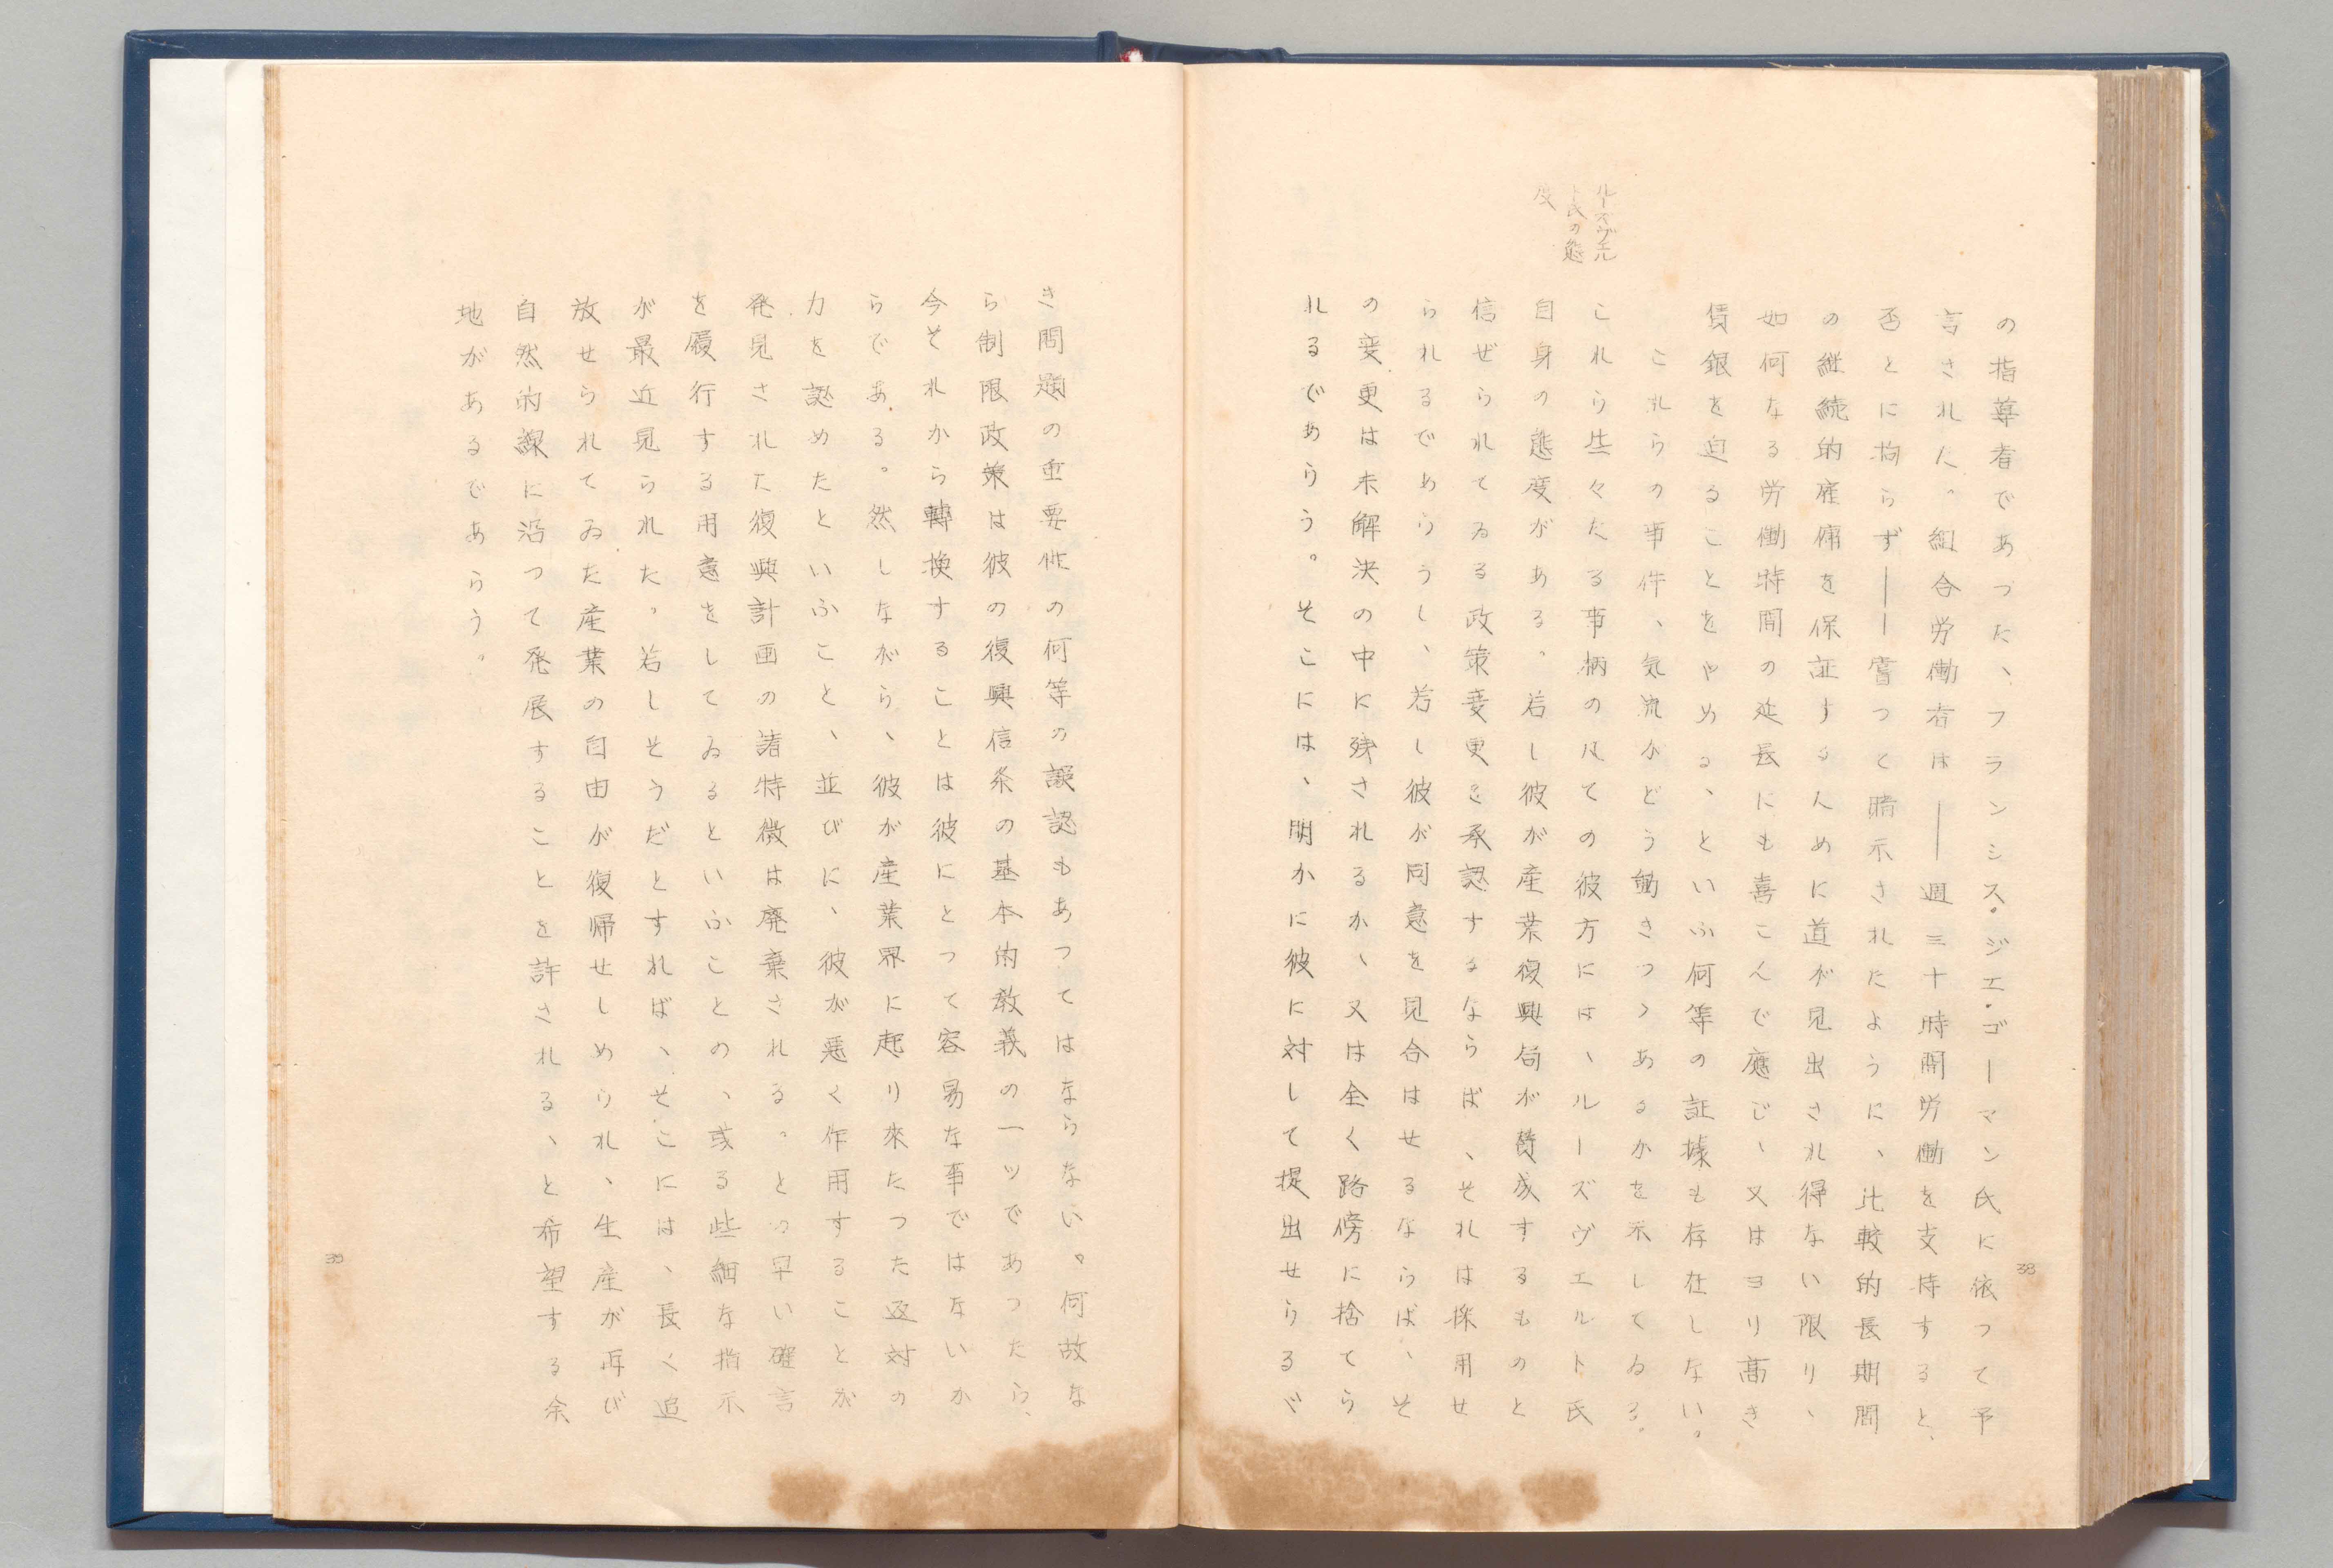 の指導者であつた、フランシス・ジエ・ゴーマン氏に依つて予
言された。組合労働者は——週三十時間労働を支持すると、
否とに拘らず——嘗つて暗示されたように、比較的長期間
の継続的雇傭を保証するためには道が見出され得ない限り、
如何なる労働時間の延長にも喜こんで應じ、又はヨリ高き
賃銀を迫ることをやめる、といふ何等の証據も存在しない。
これらの事件、気流がどう動きつつあるかを示してゐる。
ルーズヴエル
ト氏の態
度
これら些々たる事柄の凡ての彼方には、ルーズヴエルト氏
自身の態度がある。若し彼が産業復興局が賛成するものと
信ぜられてゐる政策変更を承認するならば、それは採用せ
られるであらうし、若し彼が同意を見合はせるならば、そ
の変更は未解決の中に残されるか、又は全く路傍に捨てら
れるであらう。そこには、明かに彼に対して提出せらるべ
38
き問題の重要性の何等の誤認もあつてはならない。何故な
ら制限政策は彼の復興信条の基本的教義の一ツであつたら、
今それから轉換することは彼にとつて容易な事ではないか
らである。然しながら、彼が産業界に起り來たつた反対の
力を認めたといふこと、並びに、彼が悪く作用することが
発見された復興計画の諸特徴は廃棄される。との早い確言
を履行する用意をしてゐるといふことの、或る些細な指示
が最近見られた。若しそうだとすれば、そこには、長く追
放せられてゐた産業の自由が復帰せしめられ、生産が再び
自然的線に沿つて発展することを許される、と希望する余
地があるであらう。
39